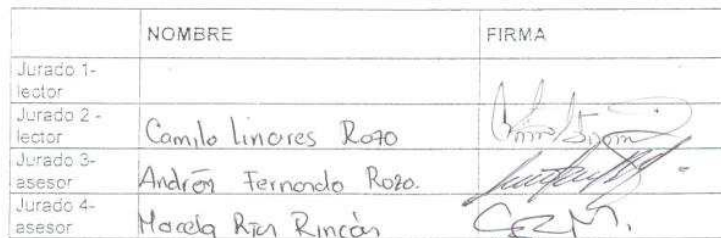 NOMBRE FIRMA
Jurado 1-
lector
Jurado 2 -
lector Camilo Linares Rozo
Jurado 3-
asesor Andrés Fernando Rozo.
Jurado 4-
asesor Marcela Rincón